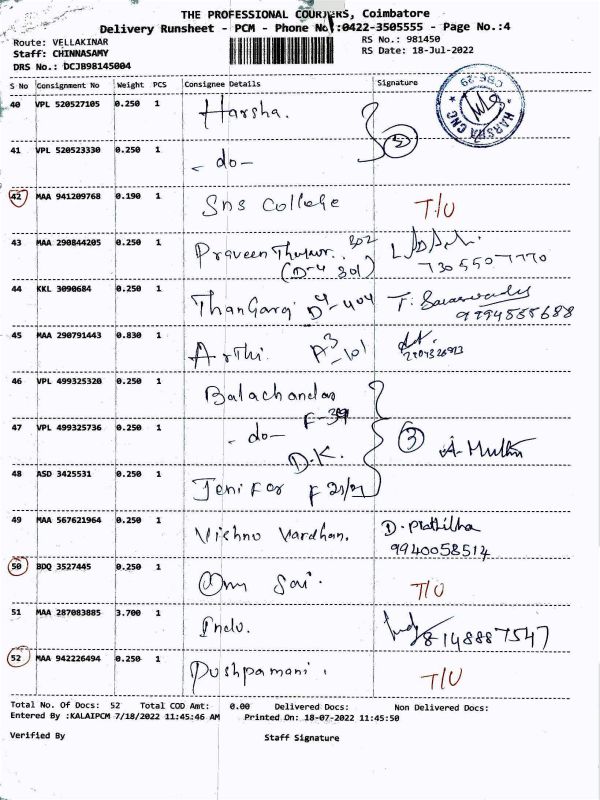 THE PROFESSIONAL COURIERS, Coimbatore
Delivery Runsheet - PCM - Phone No.:0422-3505555 - Page No.:4
Route: VELLAKINAR RS No.: 981450
Staff: CHINNASAMY RS Date: 18-Jul-2022
DRS No.: DCJB98145004
S No Consignment No Weight PCS Consignee Details Signature
40 VPL 520527105 0.250 1 Harsha.
HARSHA CNC
CBE-29
2
41 VPL 520523330 0.250 1 - do -
42 MAA 941209768 0.190 1 Sns College T/U
43 MAA 290844205 0.250 1 Praveen 302
(D-4 301) 7305507770
44 KKL 3090684 0.250 1 ThanGaraj D4-404 T. Saraswathy
9794555688
45 MAA 290791443 0.830 1 Arthi. A3-101
46 VPL 499325320 0.250 1 Balachandar
F-39
47 VPL 499325736 0.250 1 - do - 3 A. Muthu
D.K.
48 ASD 3425531 0.250 1 Jenifar F
49 MAA 567621964 0.250 1 Vishnu Vardhan. D. Prathibha
9940058514
50 BDQ 3527445 0.250 1 Om Sai. T/U
51 MAA 287083885 3.700 1 Indu. 8148887547
52 MAA 942226494 0.250 1 Pushpamani. T/U
Total No. Of Docs: 52 Total COD Amt: 0.00 Delivered Docs: Non Delivered Docs:
Entered By :KALAIPCM 7/18/2022 11:45:46 AM Printed On: 18-07-2022 11:45:50
Verified By Staff Signature